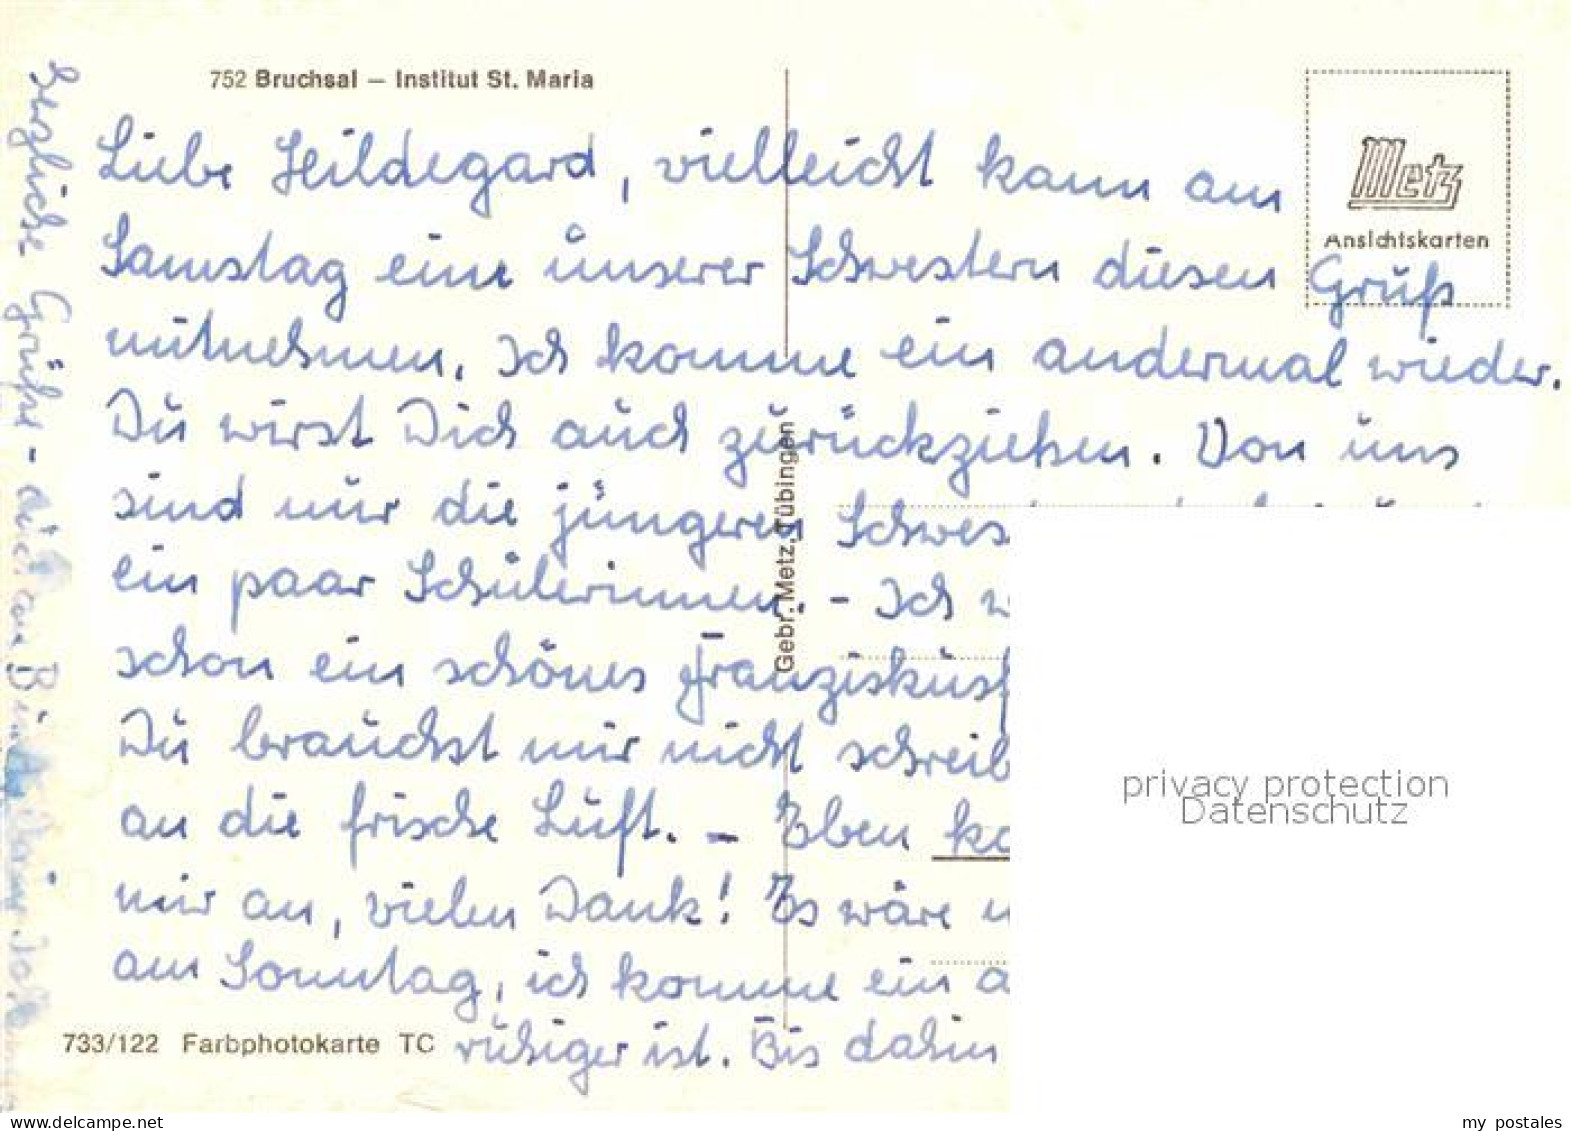 752 Bruchsal – Institut St. Maria
Metz
Ansichtskarten
Liebe Hildegard, vielleicht kann am
Samstag eine unserer Schwestern diesen Gruß
mitnehmen. Ich komme ein andermal wieder.
Du wirst Dich auch zurückziehen. Von uns
sind nur die jüngeren Schwes
ein paar Schülerinnen. - Ich w
schon ein schönes Franziskusf
Du brauchst mir nicht schreib
an die frische Luft. - Eben ko
mir an, vielen Dank! Es wäre
am Sonntag, ich komme ein a
ruhiger ist. Bis dahin
herzliche Grüße -
Gebr. Metz, Tübingen
733/122 Farbphotokarte TC
privacy protection
Datenschutz
www.delcampe.net
my_postales